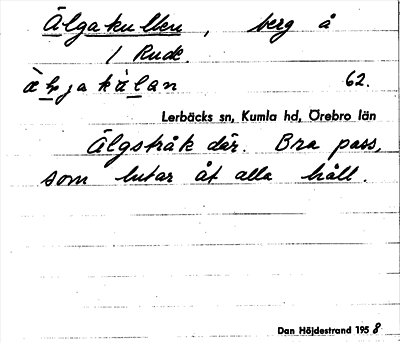 Älgakullen, berg å
1 Rude.
62.
Lerbäcks sn, Kumla hd, Örebro län
Älgstråk där. Bra pass,
som lutar åt alla håll.
Dan Höjdestrand 1958